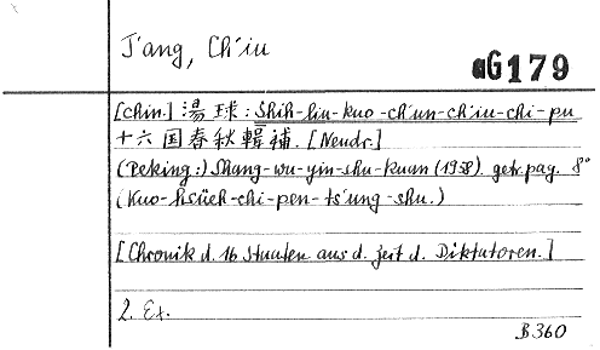 T'ang, Ch'iu
aG179
[chin.] 湯球: Shih-liu-kuo-ch'un-ch'iu-chi-pu
十六国春秋輯補. [Neudr.]
(Peking:) Shang-wu-yin-shu-kuan (1958). getr. pag. 8°
(Kuo-hsüeh-chi-pen-ts'ung-shu.)
[Chronik d. 16 Staaten aus d. Zeit d. Diktatoren.]
2. Ex.
B360